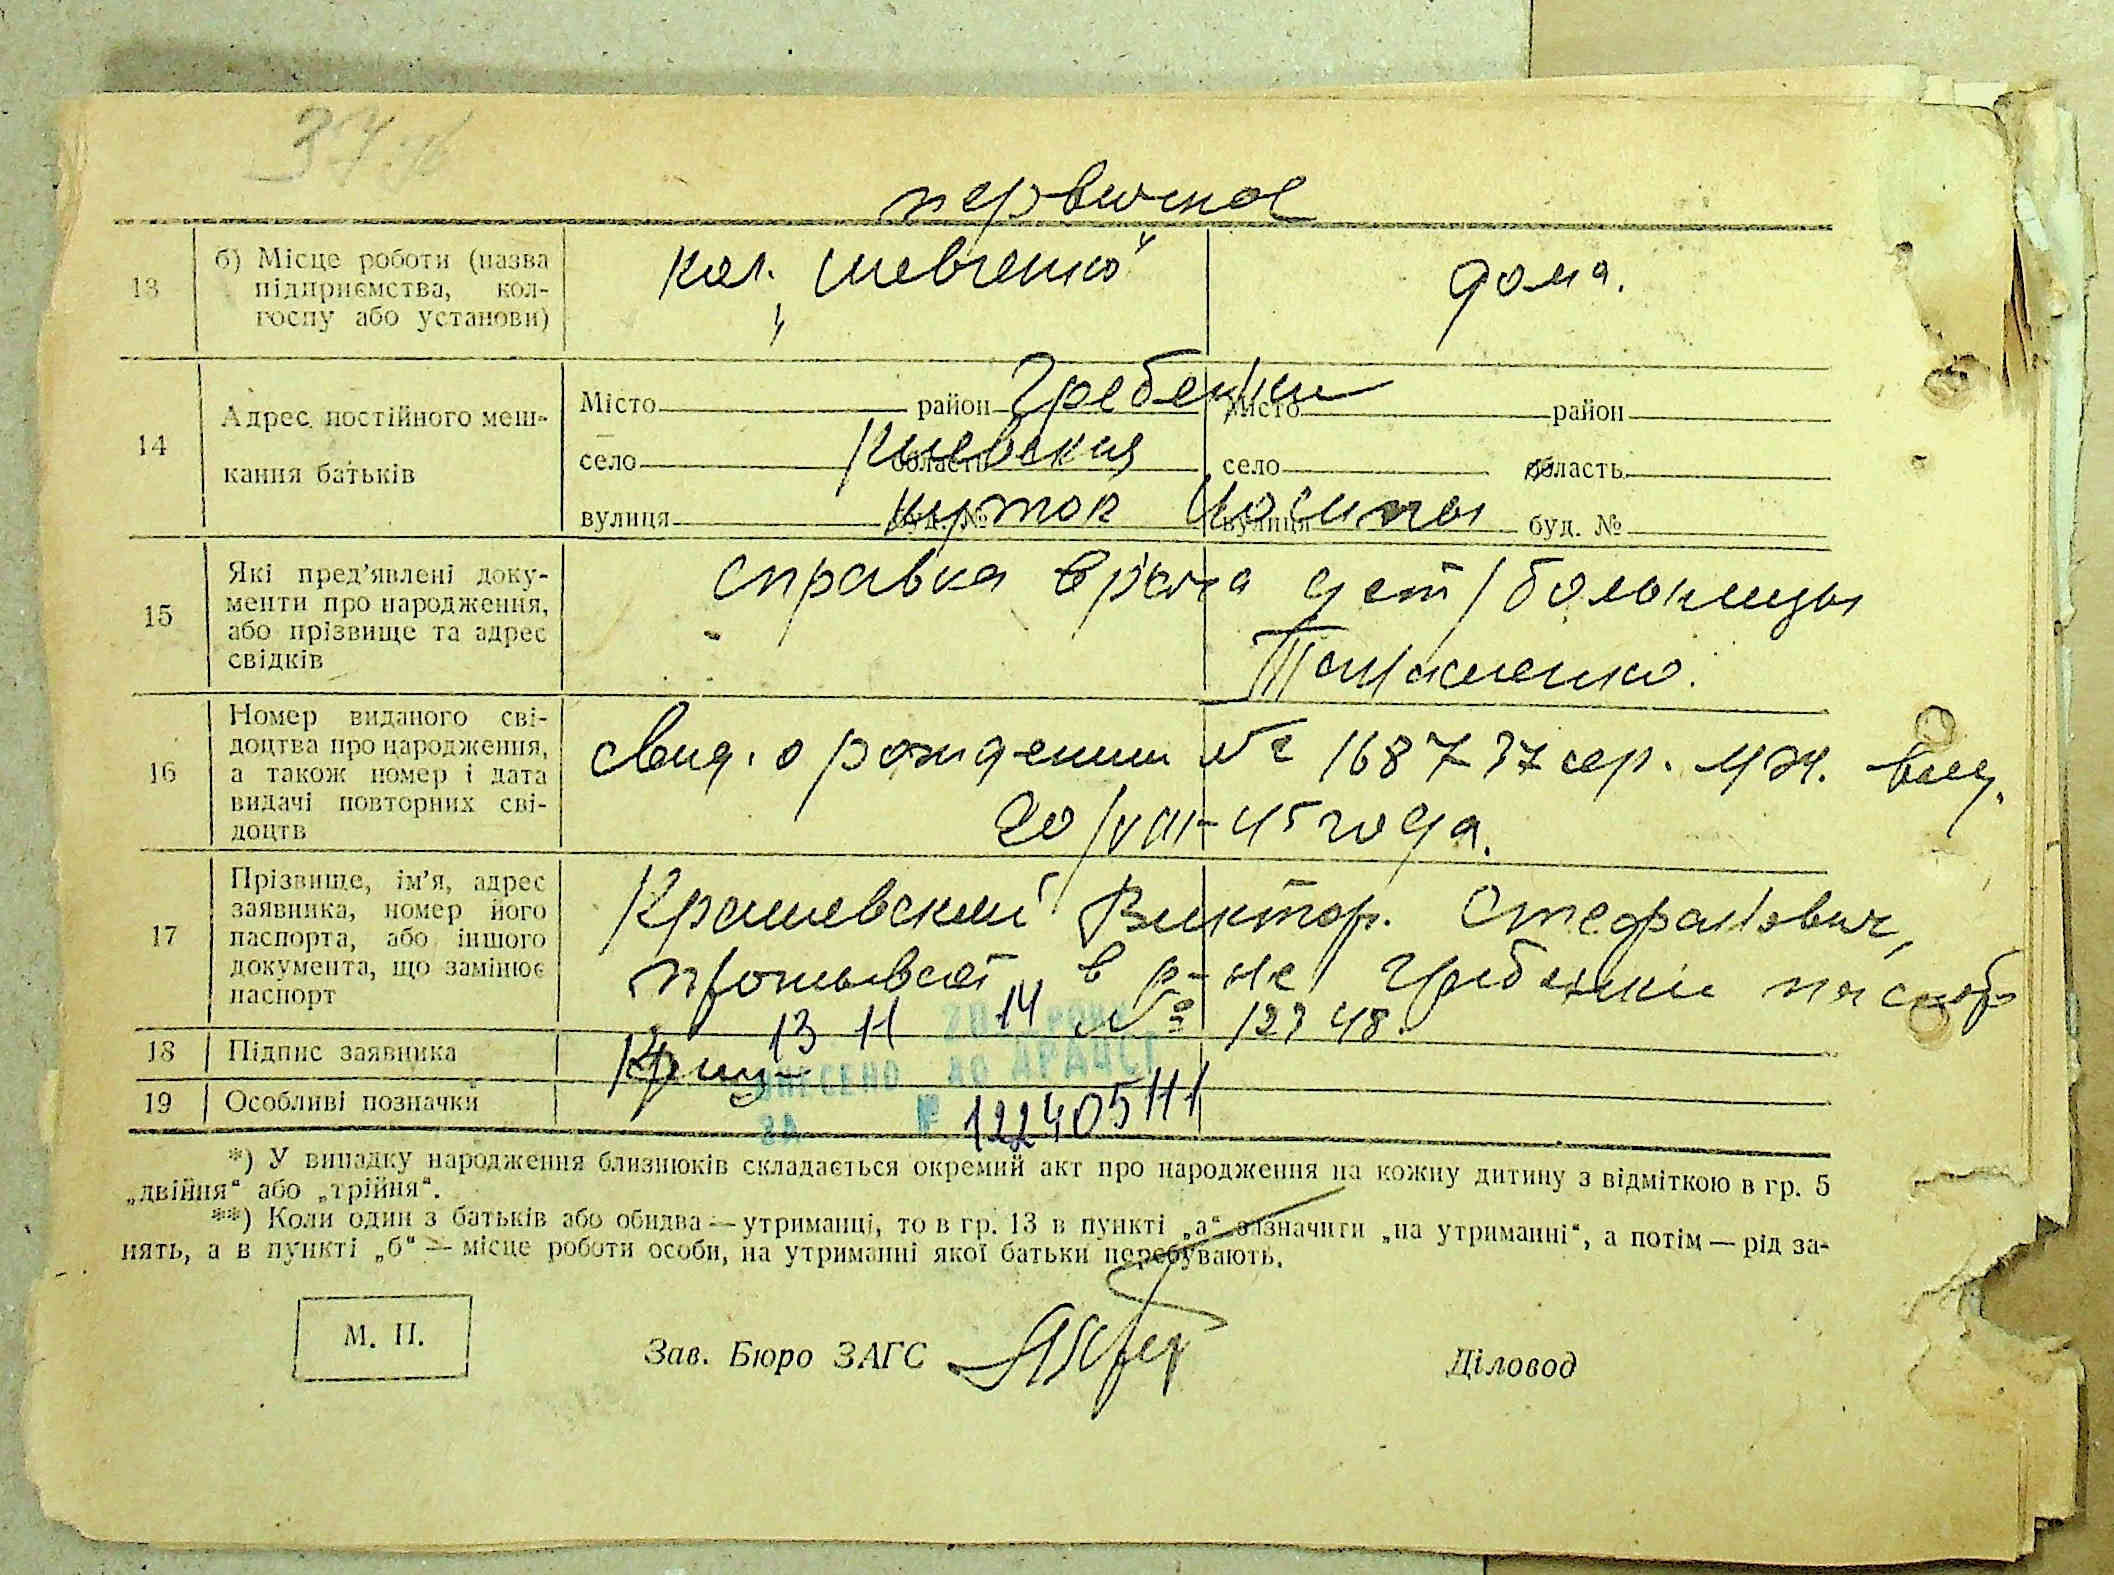 37
первичное
13
б) Місце роботи (назва
підприємства, кол-
госпу або установи)
кол. „Шевченко“
дома.
14
Адрес постійного меш-
кання батьків
Місто район Гребенки Місто район
село область Киевская село область
вулиця буд. № Куток вулиця буд. №
15
Які пред’явлені доку-
менти про народження,
або прізвище та адрес
свідків
справка врача дет/больницы
16
Номер виданого сві-
доцтва про народження,
а також номер і дата
видачі повторних сві-
доцтв
Свид. о рождении № 168737 сер. ЧЖ. выд.
20/VIII-45 года.
17
Прізвище, ім’я, адрес
заявника, номер його
паспорта, або іншого
документа, що замінює
паспорт
Крашевский Виктор. Стефанович,
проживает в р-не Гребенки паспорт
№ 12748.
18
Підпис заявника
13 11 14
ВНЕСЕНО ДО ДРАЦСГ
19
Особливі позначки
ЗА № 12240511
*) У випадку народження близнюків складається окремий акт про народження на кожну дитину з відміткою в гр. 5
„двійня“ або „трійня“.
**) Коли один з батьків або обидва — утриманці, то в гр. 13 в пункті „а“ зазначити „на утриманні“, а потім — рід за-
нять, а в пункті „б“ — місце роботи особи, на утриманні якої батьки перебувають.
М. П.
Зав. Бюро ЗАГС
Діловод